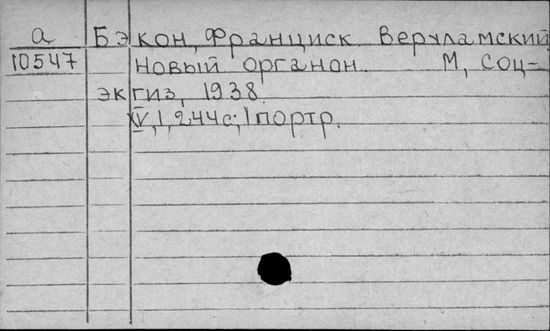 а Бэкон, Франциск Веруламский
10547 Новый органон. М, Соц-
экгиз, 1938.
XV, 1, 244с; 1 портр.